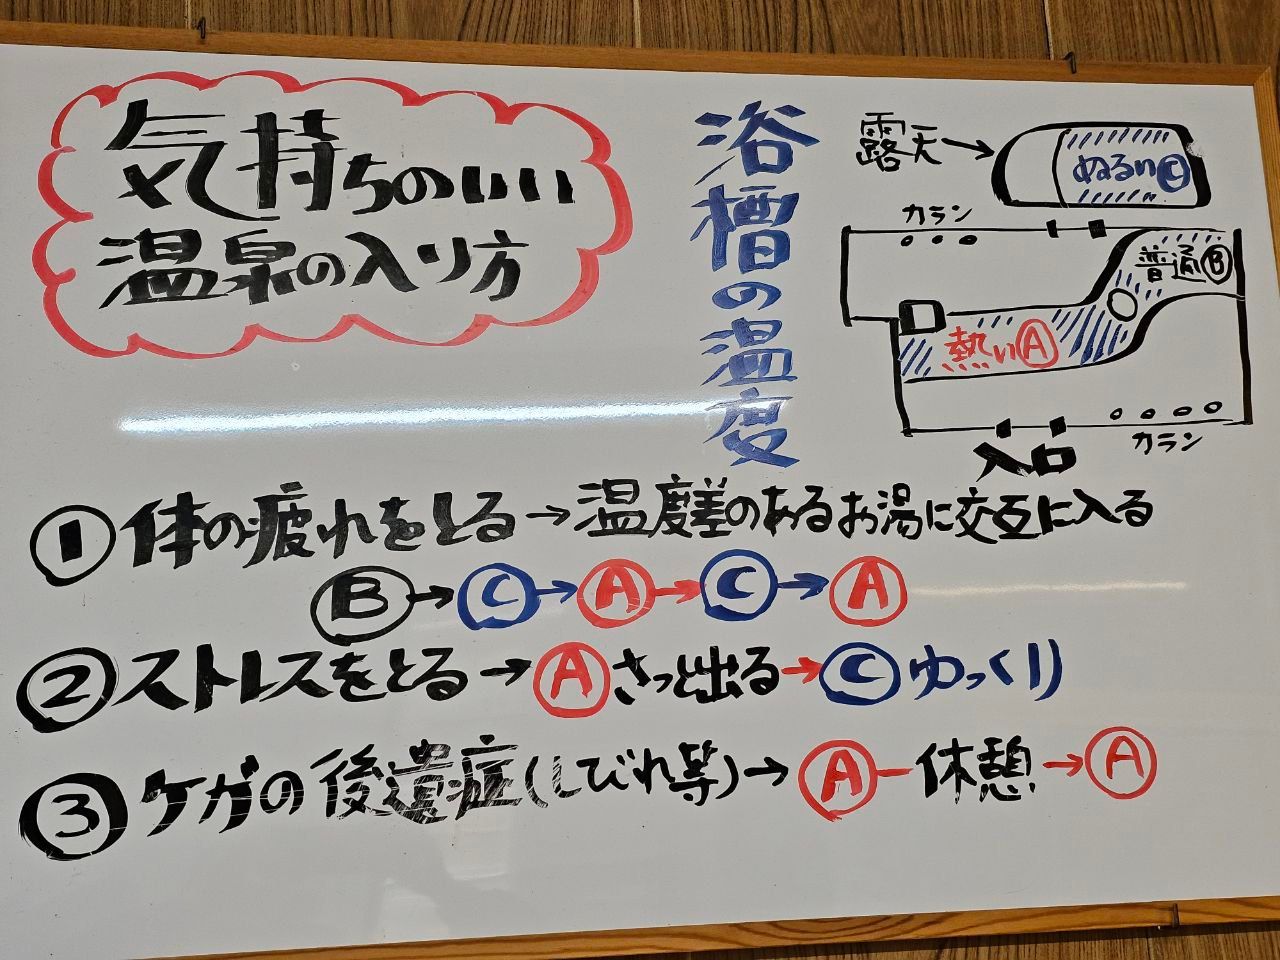 気持ちのいい
温泉の入り方
浴槽の温度
露天→
ぬるいⒸ
カラン
普通Ⓑ
熱いⒶ
入口
カラン
①体の疲れをとる→温度差のあるお湯に交互に入る
Ⓑ→Ⓒ→Ⓐ→Ⓒ→Ⓐ
②ストレスをとる→Ⓐさっと出る→Ⓒゆっくり
③ケガの後遺症(しびれ等)→Ⓐ－休憩→Ⓐ